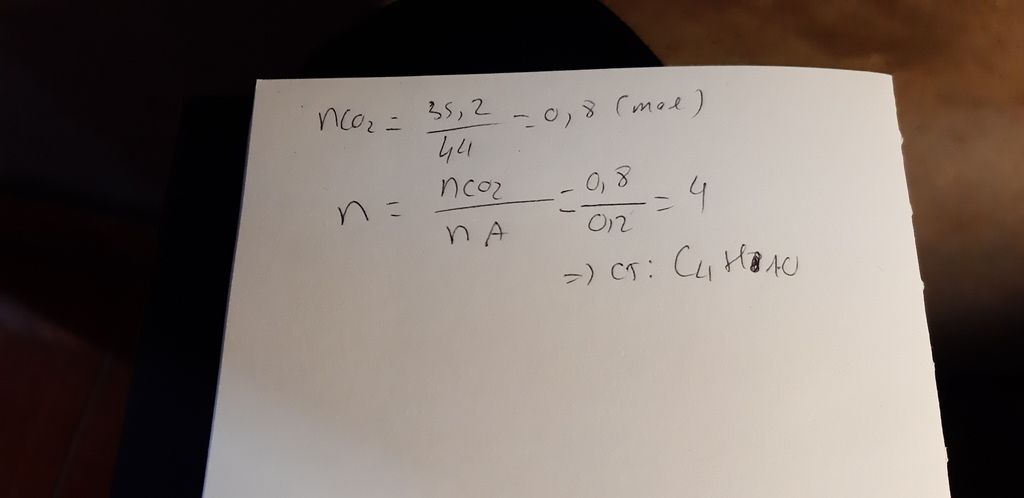 nCO2 = 35,2 / 44 = 0,8 (mol)
n = nCO2 / nA = 0,8 / 0,2 = 4
=) CT: C4H10